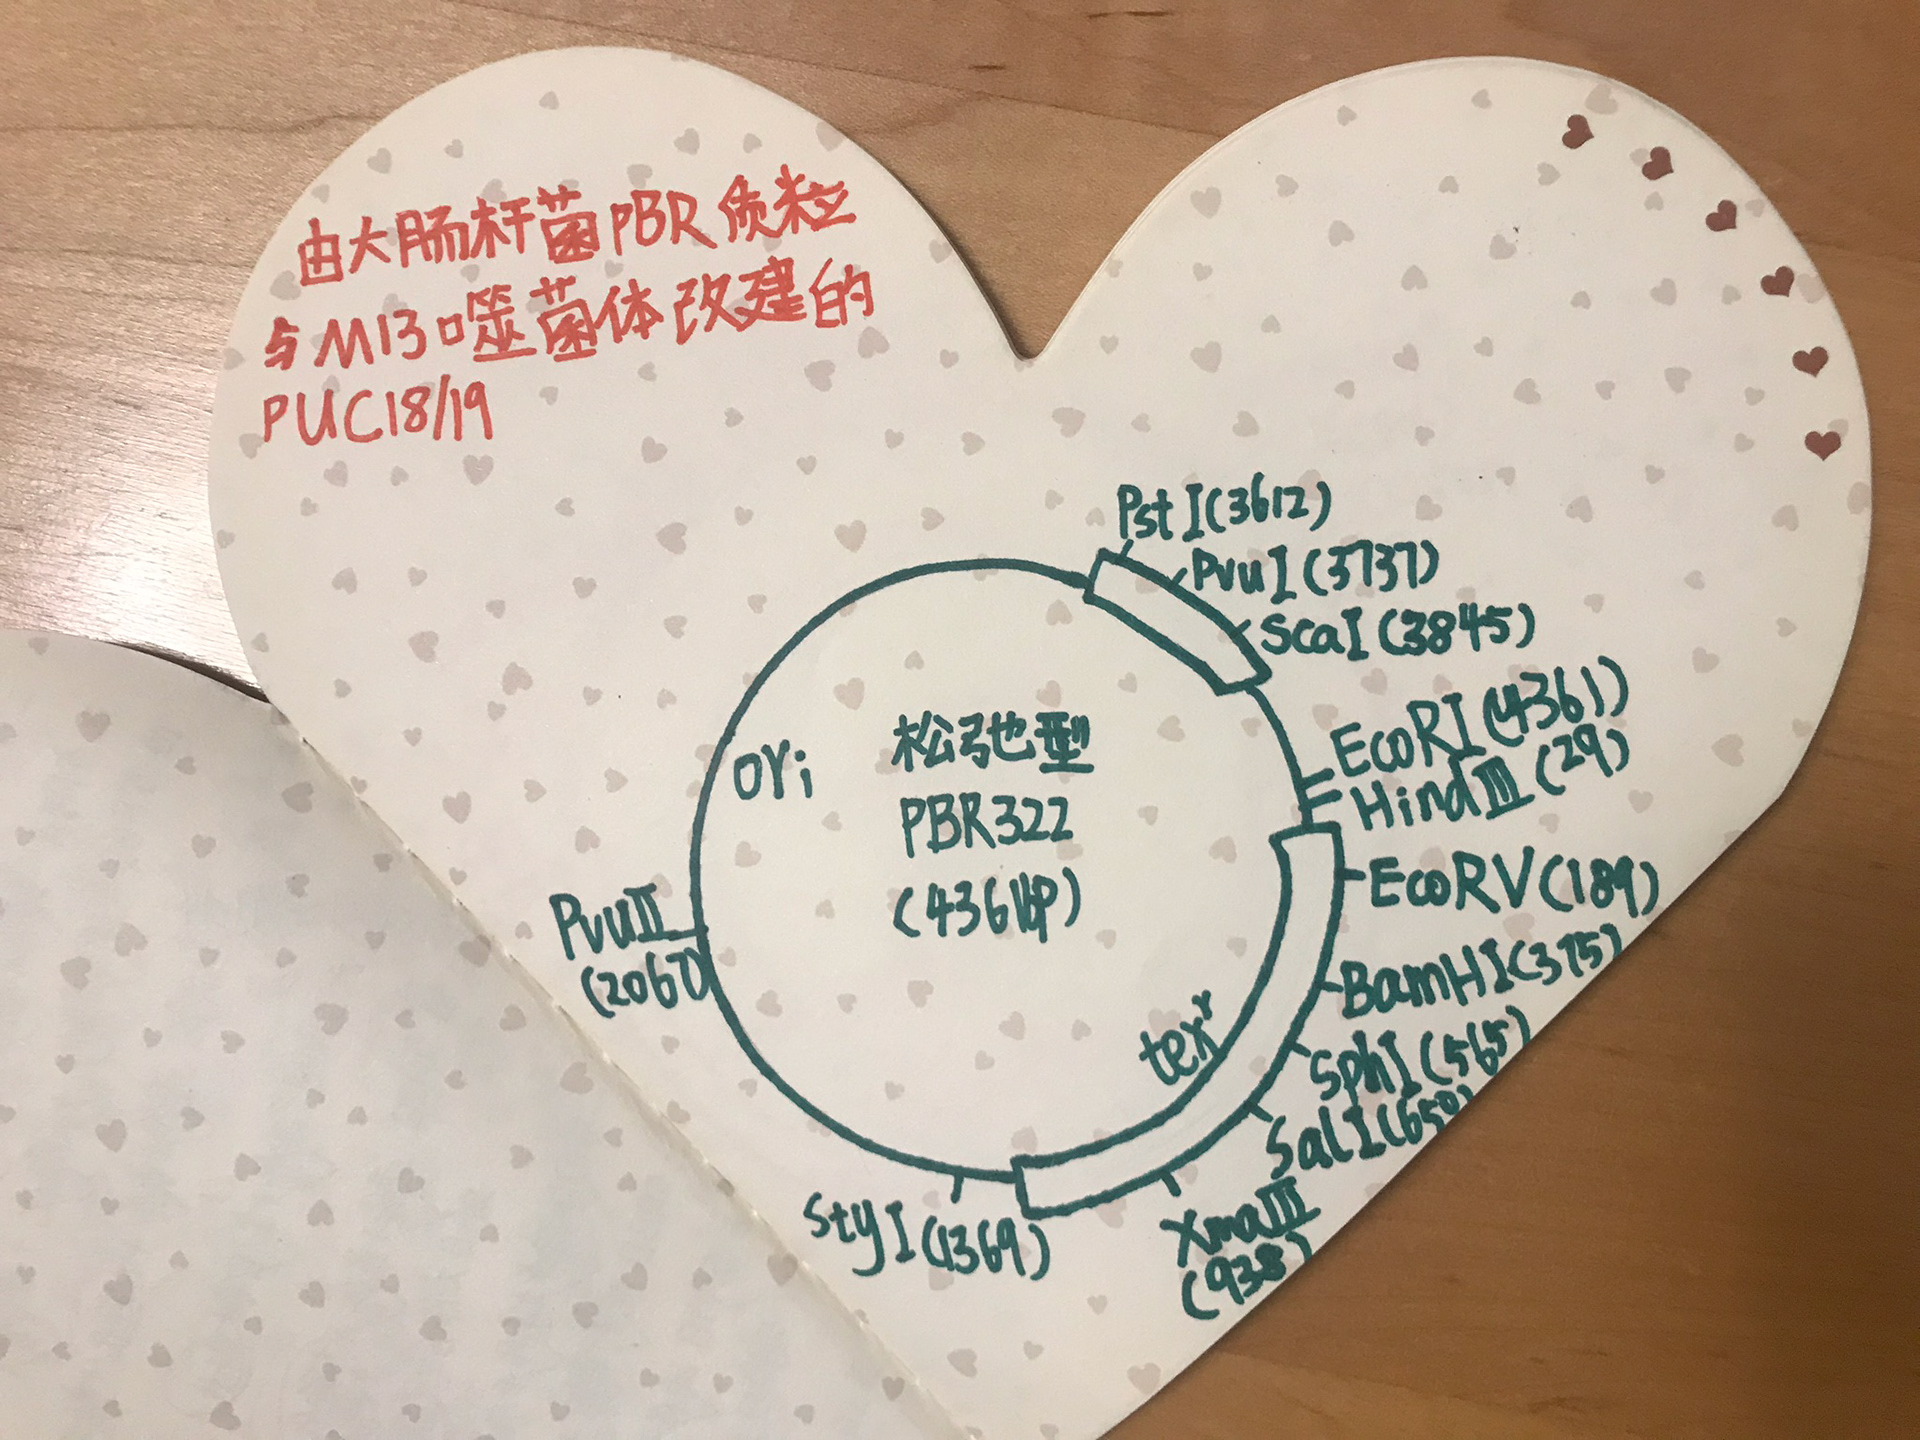 由大肠杆菌PBR质粒
与M13噬菌体改建的
PUC18/19
PstI(3612)
PvuI(3737)
ScaI(3845)
EcoRI(4361)
HindⅢ(29)
EcoRV(189)
BamHI(375)
SphI(565)
SalI(650)
XmaIII
(938)
StyI(1369)
PvuII
(2067)
ori
松弛型
PBR322
(4361bp)
texʳ